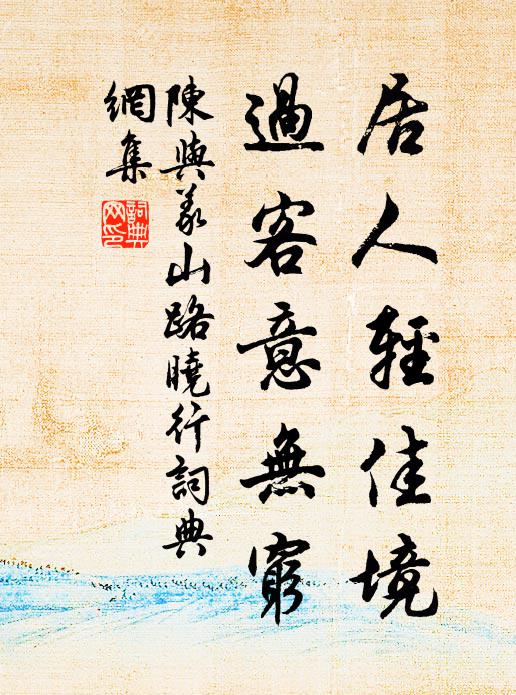 居人輕佳境
過客意無窮
陳與義山路曉行詞典
網集
詞典网印